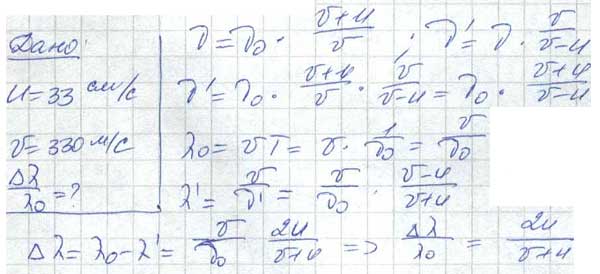 Дано:
u = 33 см/с
v = 330 м/с
Δλ/λ₀ = ?
ν = ν₀ · (v+u)/v ; ν' = ν · v/(v-u)
ν' = ν₀ · (v+u)/v · v/(v-u) = ν₀ · (v+u)/(v-u)
λ₀ = vT = v · 1/ν₀ = v/ν₀
λ' = v/ν' = v/ν₀ · (v-u)/(v+u)
Δλ = λ₀ - λ' = v/ν₀ 2u/(v+u) => Δλ/λ₀ = 2u/(v+u)